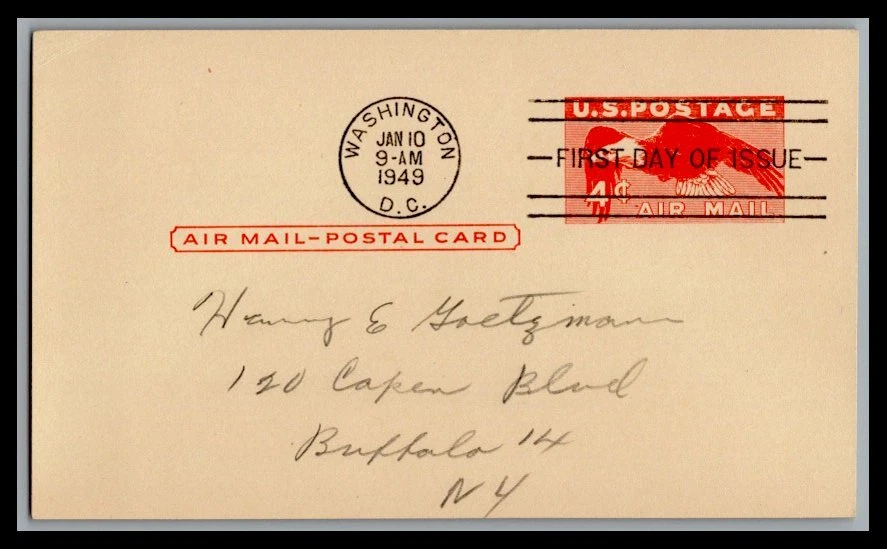 U.S.POSTAGE
WASHINGTON
JAN 10
9-AM
1949
D.C.
FIRST DAY OF ISSUE
4¢
AIR MAIL
AIR MAIL-POSTAL CARD
Henry E Goetzmann
120 Capen Blvd
Buffalo 14
NY